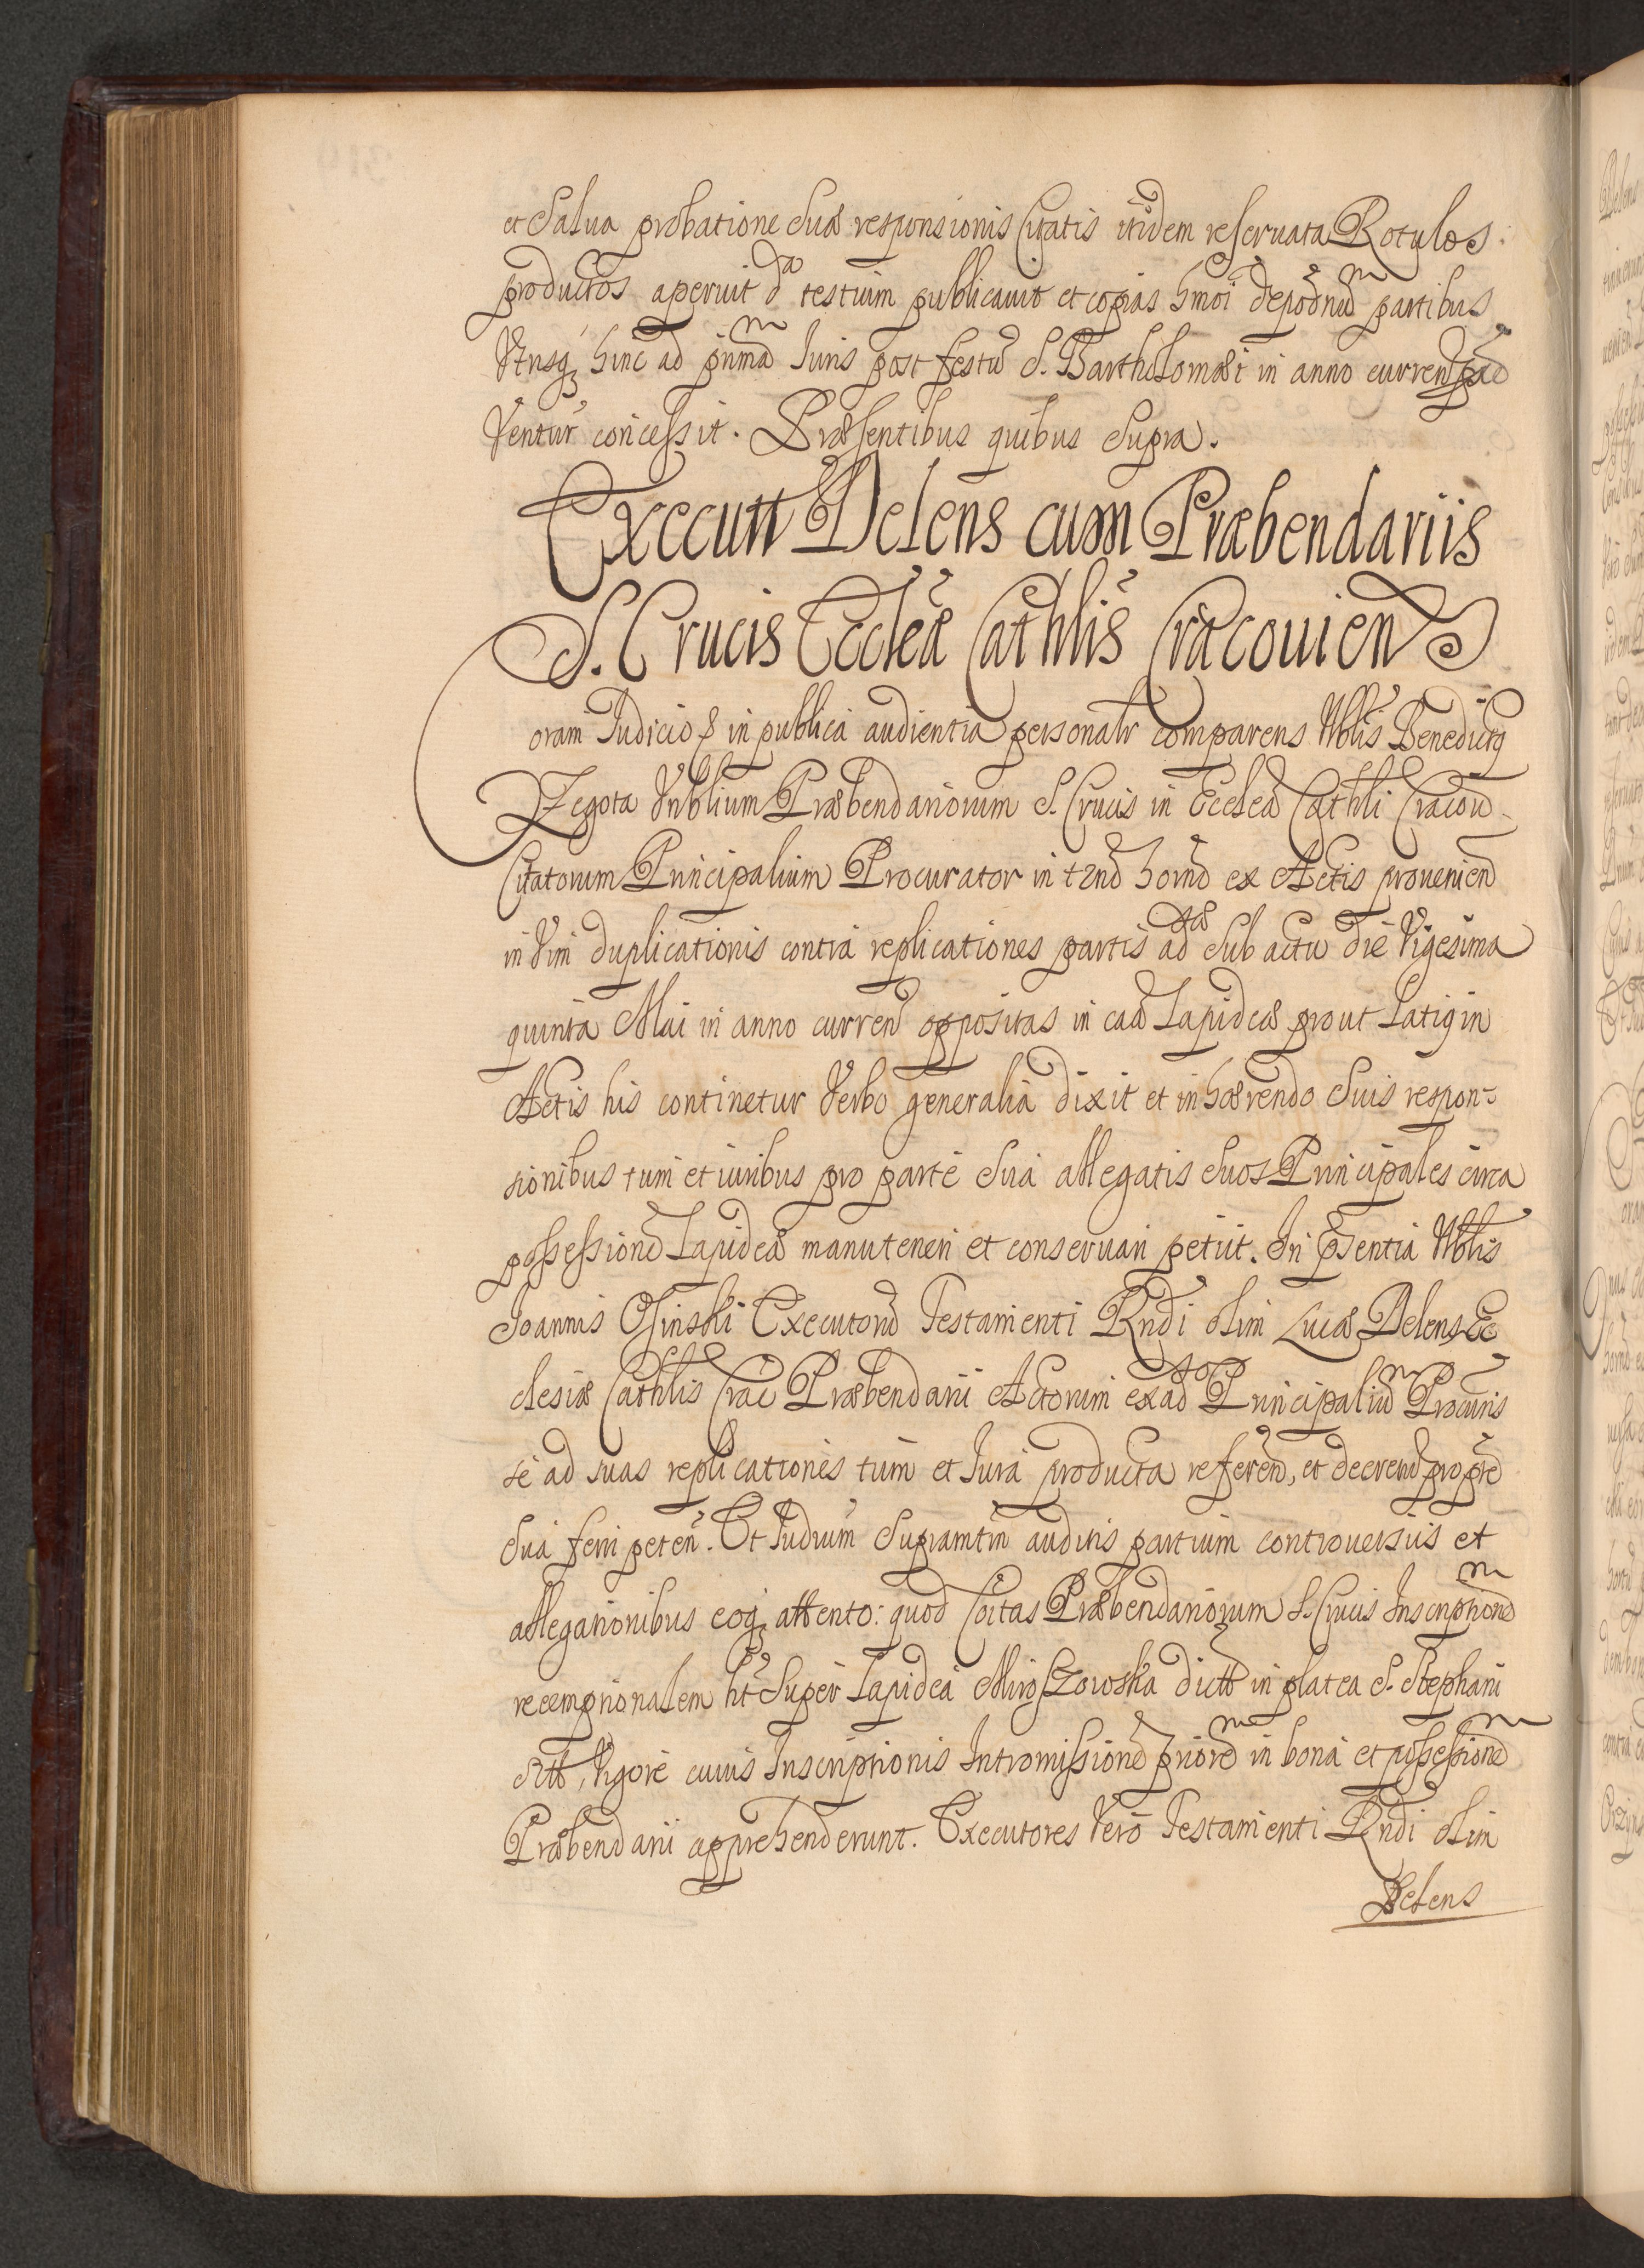 et Salua probatione Suæ responsionis Citatis itidem reseruata Rotulos
productos aperuit dta testium publicauit et copias hmoi depōnum partibus
Vtrisq; hinc ad primam Iuris post festū S. Bartholomæi in anno curren ad
Ventur concessit. Præsentibus quibus Supra.
Executt Delens cum Præbendariis
S. Crucis Ecclēa Cathlis Cracouien
Coram Iudicio & in publica audientia personalr comparens Nblis Benedictq
Zegota Vnblium Præbendariorum S. Crucis in Ecclea Cathli Cracou
Citatorum Principalium Procurator in tzno horno ex Actis prouenien
in Vim duplicationis contra replicationes partis adtæ Sub actu die Vigesima
quinta Maii in anno curren oppositas in caa Lapideæ prout Latiq in
Actis his continetur Verbo generalia dixit et inhærendo Suis respon-
sionibus tum et iuribus pro parte Sua allegatis Suos Principales circa
possessionē Lapideæ manuteneri et conseruari petiit. In Pñsentia Nblis
Ioannis Osinski Executorū Testamenti Rndi olim Lucæ Delens Ec
clesiæ Cathlis Crac Præbendarii Actorum ex ad Principaliū Procuris
se ad suas replicationes tum et Iura producta referen, et decerni pro pte
Sua ferri peten. Et Iudium Supramtm auditis partium controuersiis et
allegationibus eoq; attento: quod Coitas Præbendariorum S. Crucis Inscriptionem
reemptionalem ht Super Lapidea Miroszowska dicta in platea S. Stephani
sitt, Vigore cuius Inscriptionis Intromissionē priorem in bona et possessionem
Præbendarii apprehenderunt. Executores Vero Testamenti Rndi olim
Delens